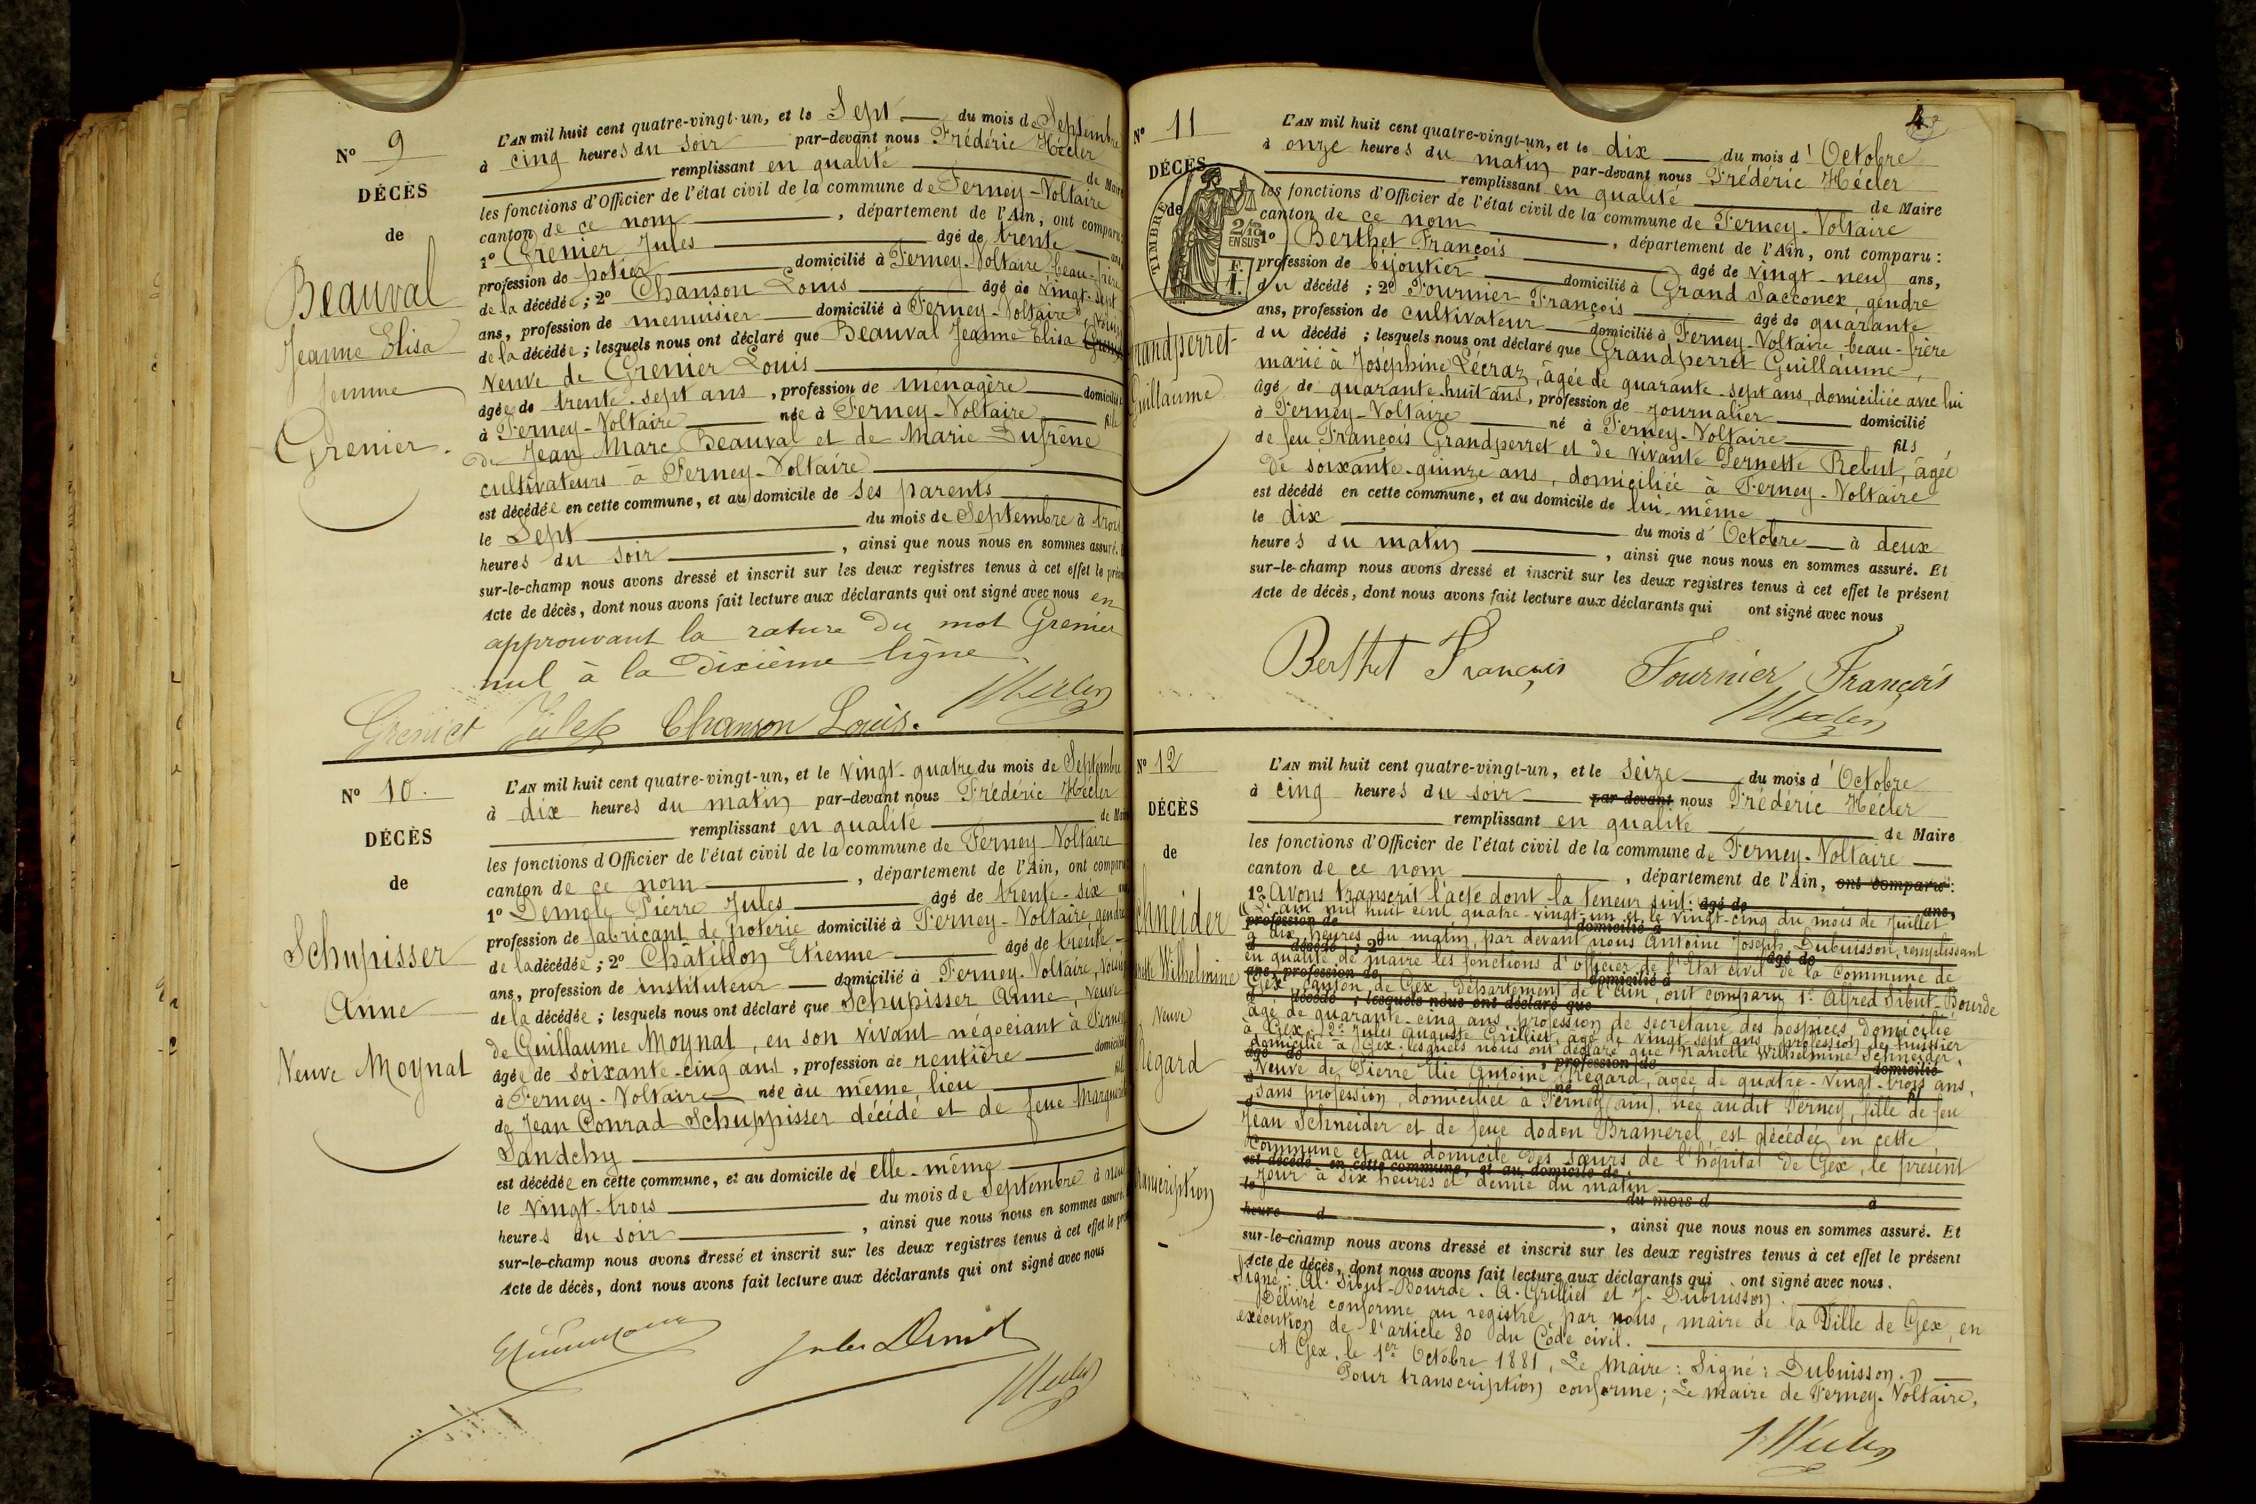 No 9
DÉCÈS
de
Beauval
Jeanne Elisa
femme
Grenier.
L'AN mil huit cent quatre-vingt-un, et le Sept du mois de Septembre
à cinq heures du soir par-devant nous Frédéric Hécler
remplissant en qualité de Maire
les fonctions d'Officier de l'état civil de la commune de Ferney-Voltaire
canton de ce nom, département de l'Ain, ont comparu:
1o Grenier Jules âgé de trente ans
profession de potier domicilié à Ferney-Voltaire, beau-frère
de la décédée; 2o Chanson Louis âgé de vingt-sept
ans, profession de menuisier domicilié à Ferney-Voltaire, voisin
de la décédée; lesquels nous ont déclaré que Beauval Jeanne Elisa
Veuve de Grenier Louis
âgée de trente-sept ans, profession de ménagère domiciliée
à Ferney-Voltaire née à Ferney-Voltaire fille
de Jean Marc Beauval et de Marie Dufrène
cultivateurs à Ferney-Voltaire
est décédée en cette commune, et au domicile de ses parents
le Sept du mois de Septembre à trois
heures du soir, ainsi que nous nous en sommes assuré.
sur-le-champ nous avons dressé et inscrit sur les deux registres tenus à cet effet le présent
Acte de décès, dont nous avons fait lecture aux déclarants qui ont signé avec nous en
approuvant la rature du mot Grenier
nul à la dixième ligne.
Grenier Jules Chanson Louis.
No 10.
DÉCÈS
de
Schupisser
Anne
Veuve Moynat
L'AN mil huit cent quatre-vingt-un, et le vingt-quatre du mois de Septembre
à dix heures du matin par-devant nous Frédéric Hécler
remplissant en qualité de Maire
les fonctions d'Officier de l'état civil de la commune de Ferney-Voltaire
canton de ce nom, département de l'Ain, ont comparu
1o Demole Pierre Jules âgé de trente-six ans
profession de fabricant de poterie domicilié à Ferney-Voltaire, gendre
de la décédée; 2o Châtillon Etienne âgé de trente
ans, profession de instituteur domicilié à Ferney-Voltaire, voisin
de la décédée; lesquels nous ont déclaré que Schupisser Anne, veuve
de Guillaume Moynat, en son vivant négociant à Ferney
âgée de soixante-cinq ans, profession de rentière domiciliée
à Ferney-Voltaire née au même lieu fille
de Jean Conrad Schuppisser décédé et de feue Marguerite
Landchy
est décédée en cette commune, et au domicile de elle-même
le vingt-trois du mois de Septembre à neuf
heures du soir, ainsi que nous nous en sommes assuré.
sur-le-champ nous avons dressé et inscrit sur les deux registres tenus à cet effet le présent
Acte de décès, dont nous avons fait lecture aux déclarants qui ont signé avec nous
43
No 11
DÉCÈS
de
TIMBRE
2/10
EN SUS
F.
1.
Grandperret
Guillaume
L'AN mil huit cent quatre-vingt-un, et le dix du mois d'Octobre
à onze heures du matin par-devant nous Frédéric Hécler
remplissant en qualité de Maire
les fonctions d'Officier de l'état civil de la commune de Ferney-Voltaire
canton de ce nom, département de l'Ain, ont comparu:
1o Berthet François âgé de vingt-neuf ans,
profession de bijoutier domicilié à Grand Sacconex, gendre
du décédé; 2o Fournier François âgé de quarante
ans, profession de cultivateur domicilié à Ferney-Voltaire beau-frère
du décédé; lesquels nous ont déclaré que Grandperret Guillaume,
marié à Joséphine Lécraz, âgée de quarante-sept ans, domiciliée avec lui
âgé de quarante-huit ans, profession de journalier domicilié
à Ferney-Voltaire né à Ferney-Voltaire fils
de feu François Grandperret et de vivante Pernette Rebut, âgée
de soixante-quinze ans, domiciliée à Ferney-Voltaire
est décédé en cette commune, et au domicile de lui-même
le dix du mois d'Octobre à deux
heures du matin, ainsi que nous nous en sommes assuré. Et
sur-le-champ nous avons dressé et inscrit sur les deux registres tenus à cet effet le présent
Acte de décès, dont nous avons fait lecture aux déclarants qui ont signé avec nous
Berthet François Fournier François
No 12
DÉCÈS
de
Schneider
Nanette Wilhelmine
Veuve
Régard
Transcription
L'AN mil huit cent quatre-vingt-un, et le seize du mois d'Octobre
à cinq heures du soir par-devant nous Frédéric Hécler
remplissant en qualité de Maire
les fonctions d'Officier de l'état civil de la commune de Ferney-Voltaire
canton de ce nom, département de l'Ain, ont comparu:
1o Avons transcrit l'acte dont la teneur suit: âgé de ans,
L'an mil huit cent quatre-vingt-un et le vingt-cinq du mois de Juillet
profession de domicilié à
à dix heures du matin, par devant nous Antoine Joseph Dubuisson, remplissant
d décédé; 2o âgé de
en qualité de maire les fonctions d'officier de l'Etat civil de la Commune de
ans, profession de domicilié à
Gex, canton de Gex, Département de l'Ain, ont comparu 1o Alfred Sibut-Bourde
d décédé; lesquels nous ont déclaré que
âgé de quarante-cinq ans, profession de secrétaire des hospices, domicilié
à Gex. 2o Jules Auguste Grilliet, âgé de vingt-sept ans, profession de huissier
domicilié à Gex, lesquels nous ont déclaré que Nanette Wilhelmine Schneider,
âgé de, profession de domicilié
Veuve de Pierre Elie Antoine Régard, âgée de quatre-vingt-trois ans,
à né à fil
sans profession, domiciliée à Ferney (Ain), née audit Ferney, fille de feu
Jean Schneider et de feue dodon Bramerel, est décédée en cette
commune et au domicile des sœurs de l'hôpital de Gex, le présent
est décédé en cette commune, et au domicile de
jour à six heures et demie du matin
le du mois d à
heure d, ainsi que nous nous en sommes assuré. Et
sur-le-champ nous avons dressé et inscrit sur les deux registres tenus à cet effet le présent
Acte de décès, dont nous avons fait lecture aux déclarants qui ont signé avec nous.
Signé: Al. Sibut-Bourde. A. Grilliet et J. Dubuisson.
Délivré conforme au registre, par nous, maire de la Ville de Gex, en
exécution de l'article 80 du Code civil.
A Gex, le 1er Octobre 1881, Le Maire: Signé: Dubuisson.
Pour transcription conforme; Le maire de Ferney-Voltaire,